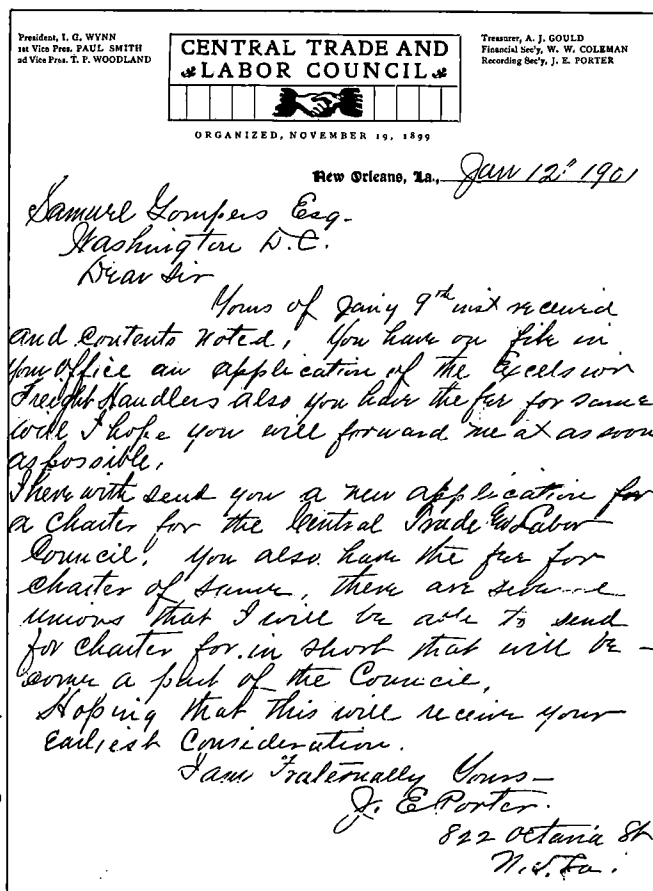 President, I. G. WYNN
1st Vice Pres. PAUL SMITH
2d Vice Pres. T. P. WOODLAND
CENTRAL TRADE AND
LABOR COUNCIL
ORGANIZED, NOVEMBER 19, 1899
Treasurer, A. J. GOULD
Financial Sec'y, W. W. COLEMAN
Recording Sec'y, J. E. PORTER
New Orleans, La., Jan 12" 1901
Samuel Gompers Esq-
Washington D.C.
Dear Sir
Yours of Jany 9th inst received
and contents noted, You have on file in
your office an application of the Excelsior
Freight Handlers also you have the fee for same
I hope you will forward me at as soon
as possible,
I herewith send you a new application for
a charter for the Central Trade & Labor
Council. you also have the fee for
charter of same, there are several
unions that I will be able to send
for charter for in short that will be-
come a part of the Council,
Hoping that this will receive your
earliest Consideration.
I am Fraternally Yours-
J. E Porter.
822 Octavia St
N.O. La.